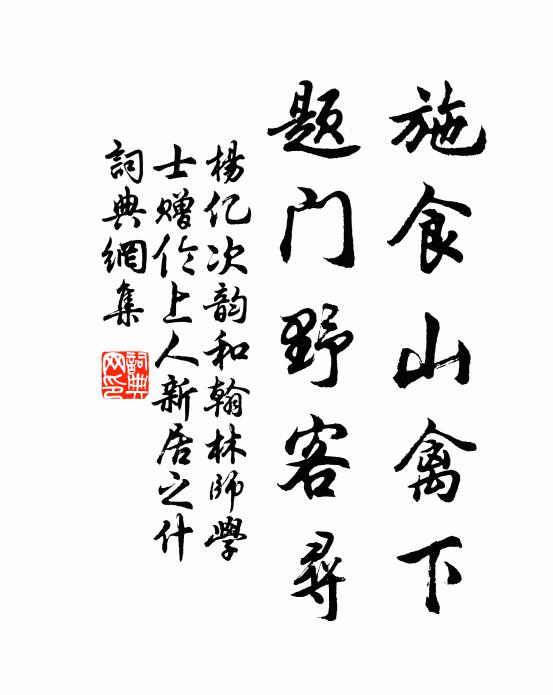 施食山禽下
题门野客尋
楊亿次韵和翰林师學
士赠伦上人新居之什
詞典網集
詞典网印